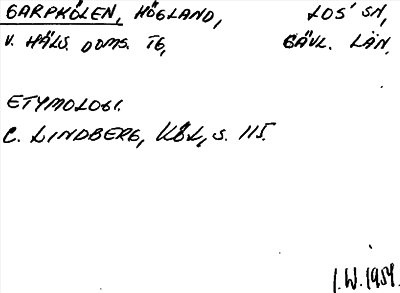 GARPKÖLEN, HÖGLAND, LOS' SN,
V. HÄLS. DOMS. TG, GÄVL. LÄN.
ETYMOLOGI.
C. LINDBERG, KÖL, S. 115.
I.W. 1954.